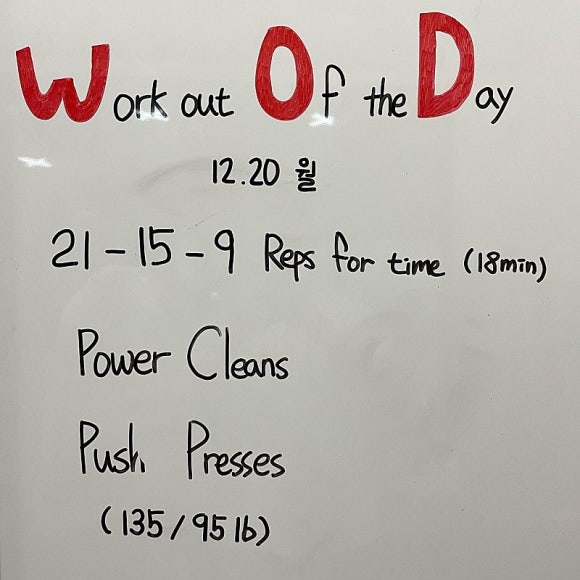 Work out Of the Day
12.20 월
21-15-9 Reps for time (18min)
Power Cleans
Push Presses
(135/95 lb)